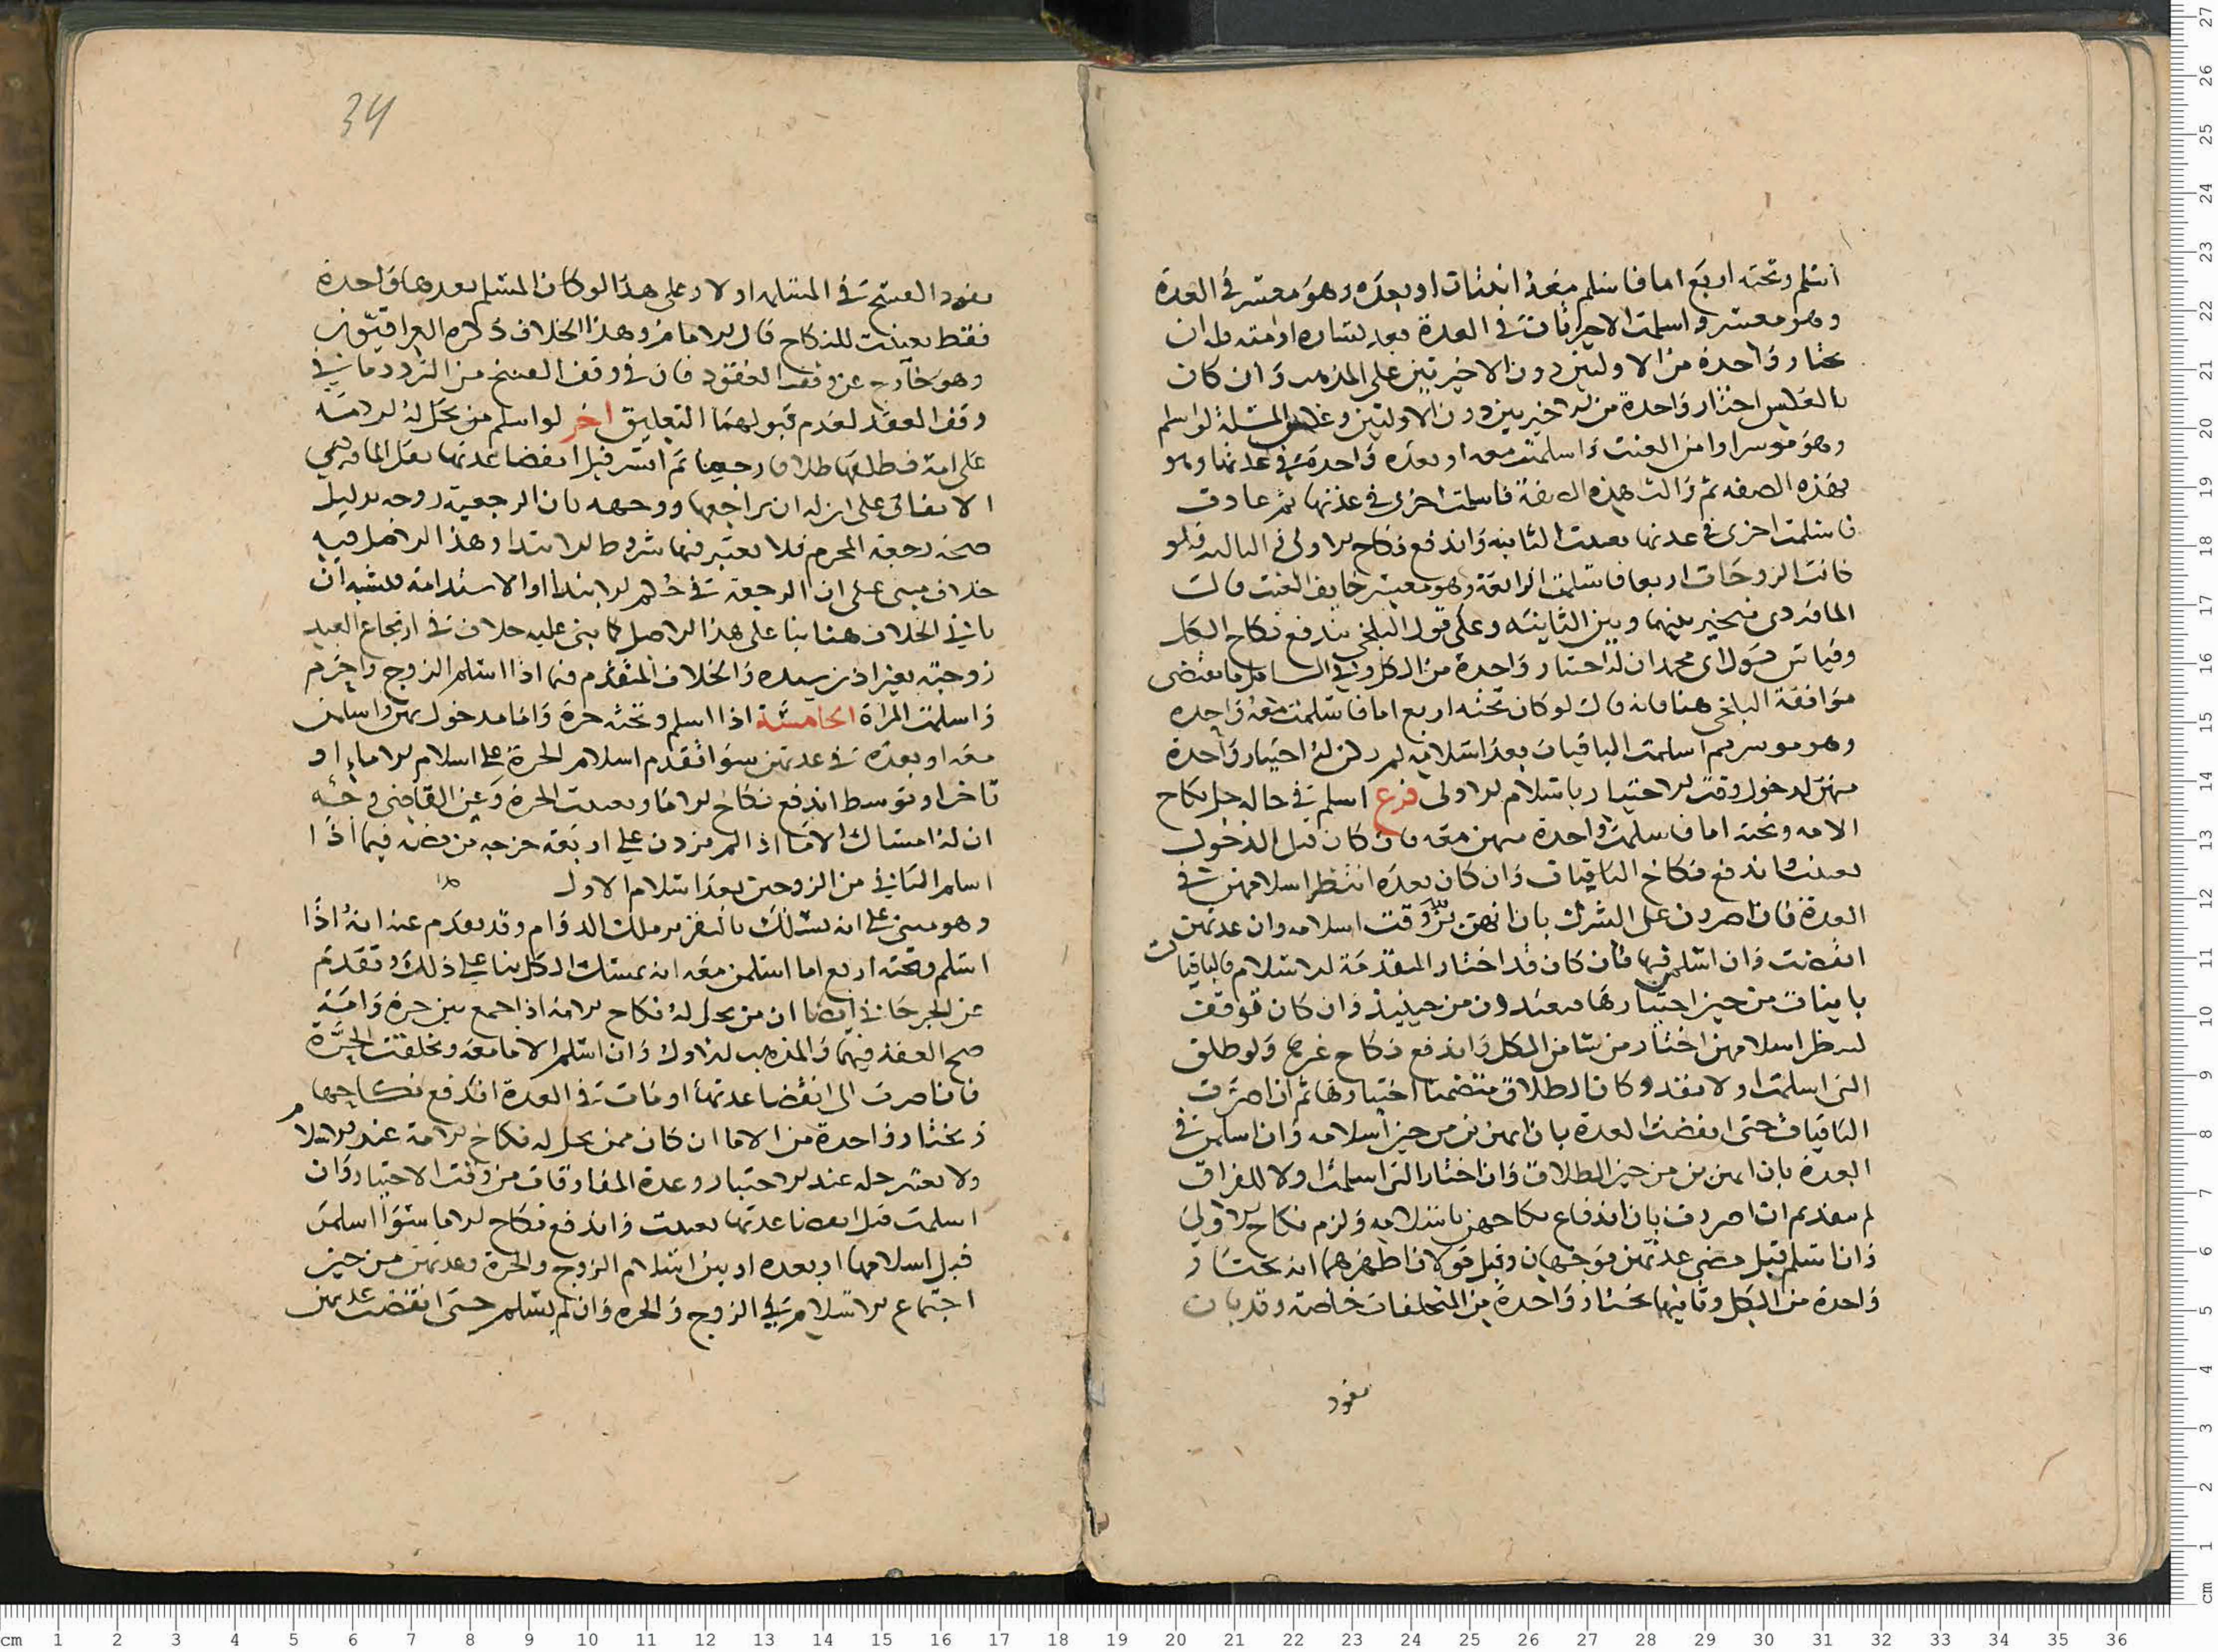 اسلم وتحته اربع اما فاسلم معه اثنتان او بعده وهو معسر في العدة
وهو معسر واسلمت الاخريان في العدة بعد يساره او منه فله ان
يختار واحدة من الاولتين دون الاخيرتين على المذهب وان كان
بالعكس اختار واحدة من الاخيرتين دون الاولتين وعكس المسئلة لو اسلم
وهو موسر او امن العنت واسلمت معه او بعده واحدة في عدتها وهو
بهذه الصفه ثم زالت هذه الصفة فاسلمت اخرى في عدتها ثم عادت
فاسلمت اخرى في عدتها تعينت الثانيه واندفع نكاح الاولى والثالثه فلو
كانت الزوجات اربعا فاسلمت الرابعة وهو معسر خايف العنت قال
الماوردي يتخير بينها وبين الثانيه وعلى قول البلخي يندفع نكاح الكل
وقياس قول ابي محمد ان له اختيار واحدة من الكل وفي الشامل ما يقتضي
موافقة البلخي هنا فانه قال لو كان تحته اربع اما فاسلمت معه واحده
وهو موسر ثم اسلمت الباقيات بعد اسلامه لم يكن له اختيار واحدة
منهن لدخول وقت الاختيار باسلام الاولى فرع اسلم في حاله حل نكاح
الامه وتحته اما فاسلمت واحدة منهن معه فان كان قبل الدخول
تعينت واندفع نكاح الباقيات وان كان بعده انتظر اسلامهن في
العدة فان اصررن على الشرك بان انهن بن وقت اسلامه وان عدتهن
انقضت وان اسلمن فيها فان كان قد اختار المتقدمة الاسلام فالباقيات
باينات من حين اختيارها فيعتددن من حينيذ وان كان توقف
لينظر اسلامهن اختار من شا من الكل واندفع نكاح غيرها ولو طلق
التي اسلمت اولا نفذ وكان الطلاق متضمنا اختيارها ثم ان اصرت
الباقيات حتى انقضت العدة بان انهن بن من حين اسلامه وان اسلمن في
العدة بان انهن بن من حين الطلاق وان اختار التي اسلمت اولا للفراق
لم ينفذ ثم ان اصررن بان اندفاع نكاحهن باسلامه ولزم نكاح الاولى
وان اسلمن قبل مضي عدتهن فوجهان وقيل قولان اظهرهما انه يختار
واحدة من الكل وثانيهما يختار واحدة من المتخلفات خاصة وقد بان
نفوذ
34
نفوذ الفسخ في المسلمه اولا وعلى هذا لو كان المسلم بعدها واحدة
فقط تعينت للنكاح قال الامام وهذا الخلاف ذكره العراقيون
وهو خارج عن وقف العقود فان في وقف الفسخ من التردد ما في
وقف العقد لعدم قبولهما التعليق اخر لو اسلم من يحل له الامة
على امة فطلقها طلاقا رجعيا ثم ايسر قبل انقضا عدتها نقل الماوردي
الاتفاق على ان له ان يراجعها ووجهه بان الرجعية زوجه بدليل
صحة رجعة المحرم فلا يعتبر فيها شروط الابتدا وهذا الاصل فيه
خلاف مبني على ان الرجعة في حكم الابتدا او الاستدامة فيشبه ان
ياتي الخلاف هنا بنا على هذا الاصل كما بني عليه خلاف في ارتجاع العبد
زوجته بغير اذن سيده والخلاف المتقدم فيما اذا اسلم الزوج واحرم
واسلمت المراة الخامسة اذا اسلم وتحته حرة واما مدخول بهن واسلمن
معه او بعده في عدتهن سوا تقدم اسلام الحرة على اسلام الاما او
تاخر او توسط اندفع نكاح الاما وتعينت الحرة وعن القاضي وجه
ان له امساك الاما اذا لم يزدن على اربعة خرجه من نصه فيما اذا
اسلم الثاني من الزوجين بعد اسلام الاول
وهو مبني على انه يسلك بالتقرير مسلك الدوام وقد تقدم عنه انه اذا
اسلم وتحته اربع اما اسلمن معه انه يمسك الكل بنا على ذلك وتقدم
عن الجرجاني ايضا ان من يحل له نكاح الامة اذا جمع بين حرة وامة
صح العقد فيهما والمذهب الاول وان اسلم الاما معه وتخلفت الحرة
فان اصرت الى انقضا عدتها او ماتت في العدة اندفع نكاحها
ويختار واحدة من الاما ان كان ممن يحل له نكاح الامة عند الاسلام
ولا يعتبر حله عند الاختيار وعدة المفارقات من وقت الاختيار وان
اسلمت قبل انقضا عدتها تعينت واندفع نكاح الاما سوا اسلمن
قبل اسلامها او بعده او بين اسلام الزوج والحرة وعدتهن من حين
اجتماع الاسلام في الزوج والحره وان لم يسلم حتى انقضت عدتهن